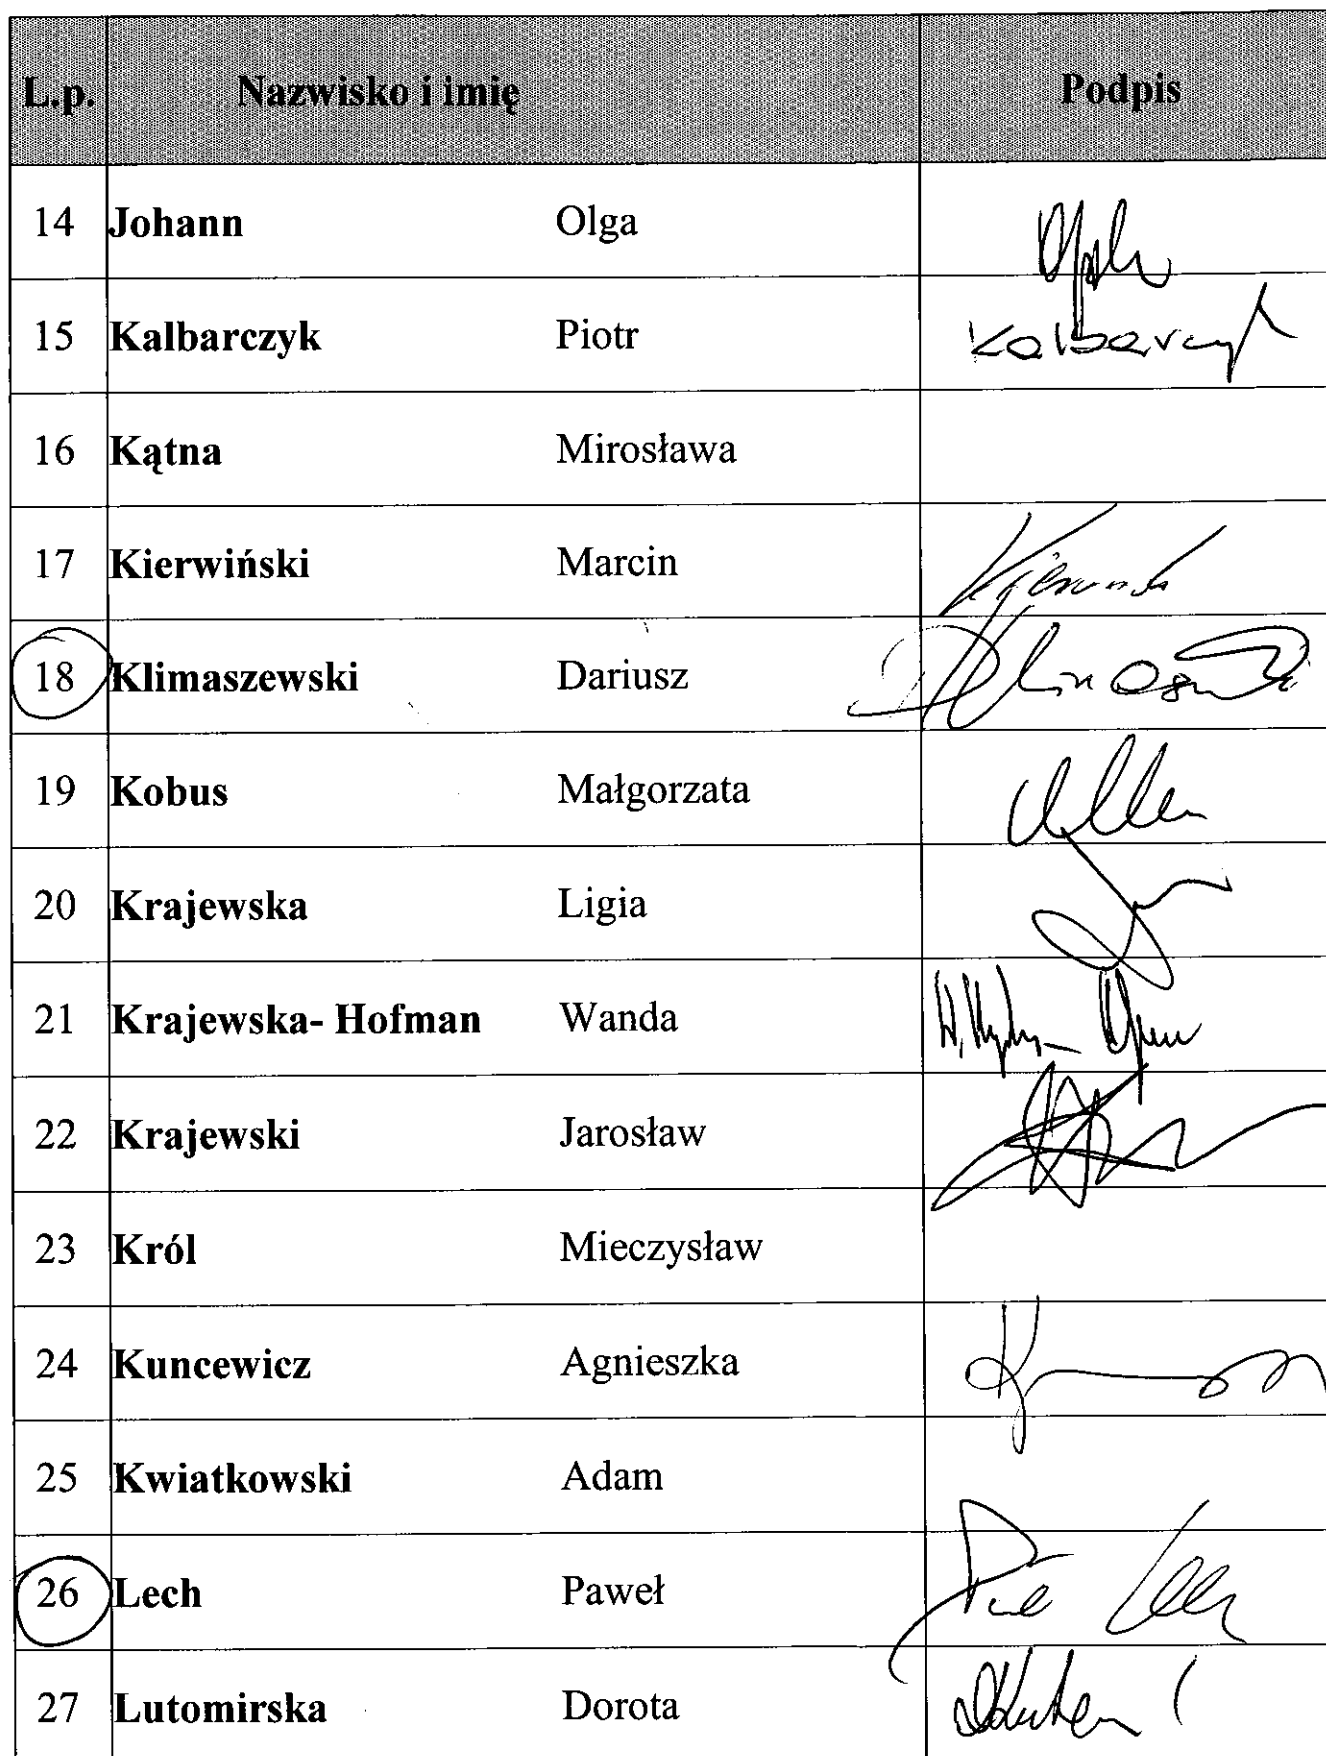 L.p. Nazwisko i imię Podpis
14 Johann Olga
15 Kalbarczyk Piotr Kalbarczyk
16 Kątna Mirosława
17 Kierwiński Marcin
18 Klimaszewski Dariusz
19 Kobus Małgorzata
20 Krajewska Ligia
21 Krajewska- Hofman Wanda
22 Krajewski Jarosław
23 Król Mieczysław
24 Kuncewicz Agnieszka
25 Kwiatkowski Adam
26 Lech Paweł
27 Lutomirska Dorota